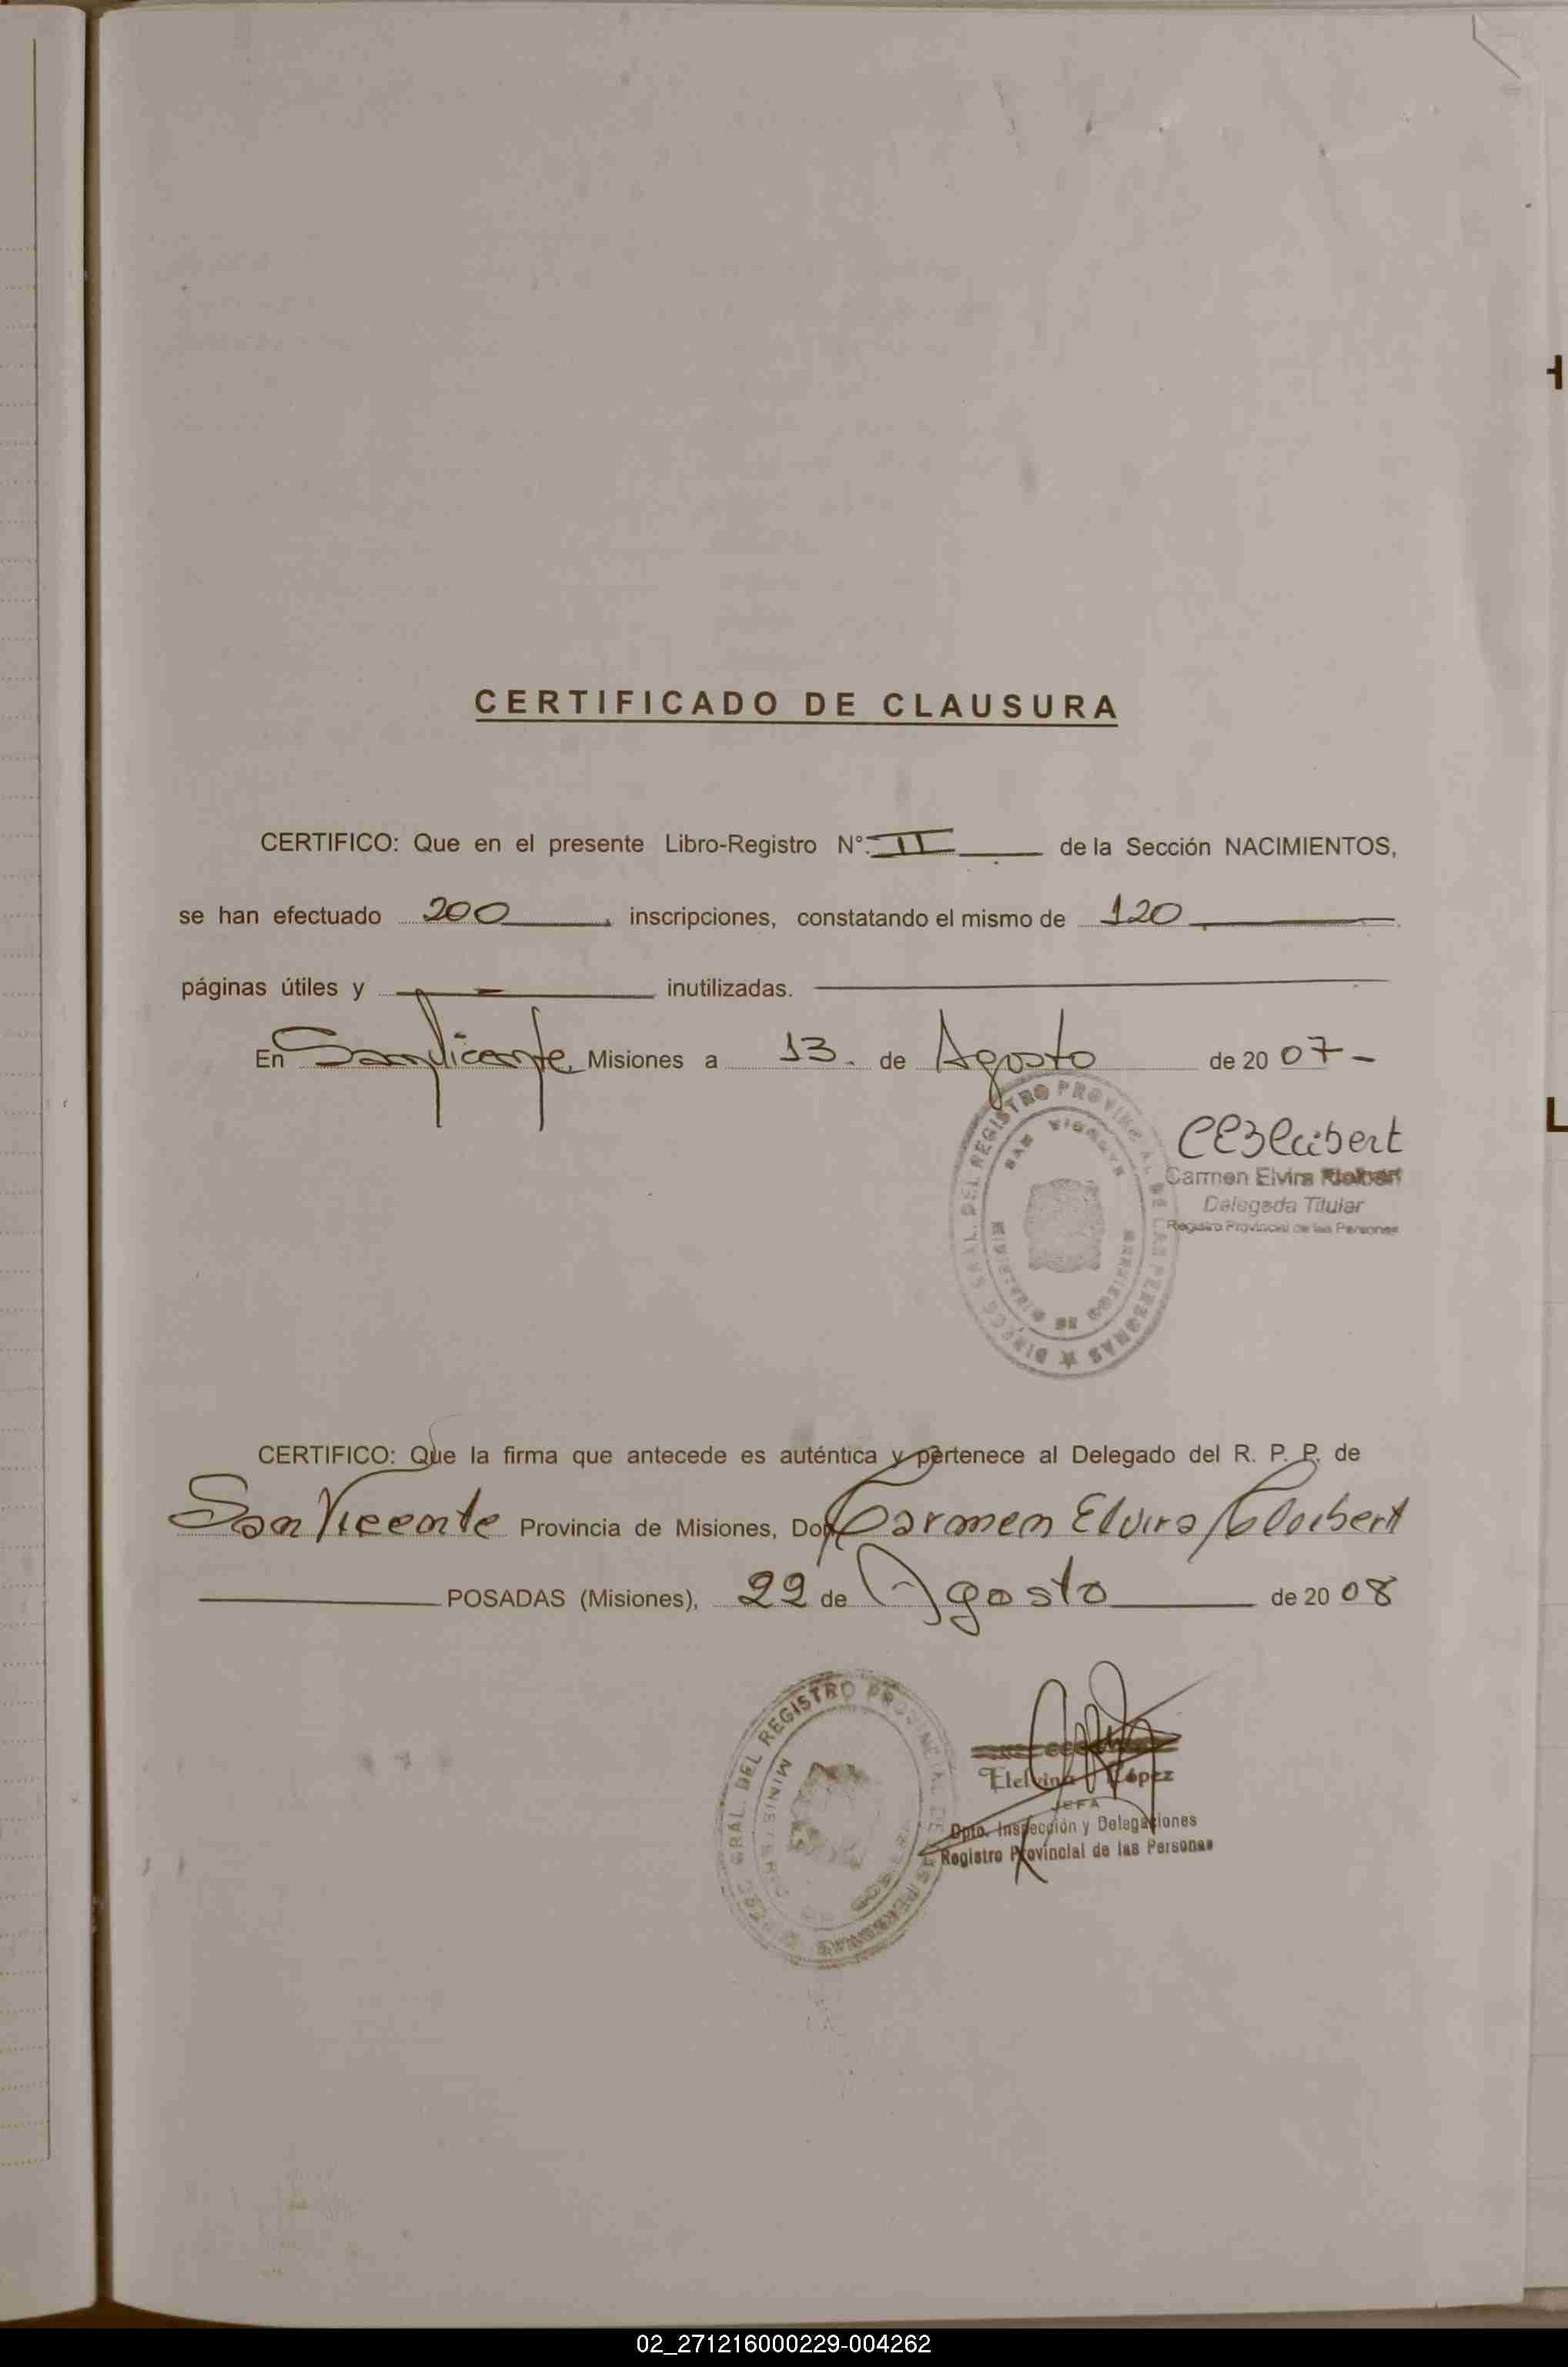 CERTIFICADO DE CLAUSURA
CERTIFICO: Que en el presente Libro-Registro N°: II de la Sección NACIMIENTOS,
se han efectuado 200 inscripciones, constatando el mismo de 120
páginas útiles y - inutilizadas.
En San Vicente, Misiones a 13. de Agosto de 20 07-
Carmen Elvira
Delegada Titular
Registro Provincial de las Personas
DEL REGISTRO PROVINCIAL DE LAS PERSONAS
SAN VICENTE
CERTIFICO: Que la firma que antecede es auténtica y pertenece al Delegado del R. P. P. de
San Vicente Provincia de Misiones, Don Carmen Elvira Kloibert
POSADAS (Misiones), 22 de Agosto de 20 08
GRAL. DEL REGISTRO PROVINCIAL DE LAS PERSONAS
López
JEFA
Dpto. Inspección y Delegaciones
Registro Provincial de las Personas
H
L
02_271216000229-004262